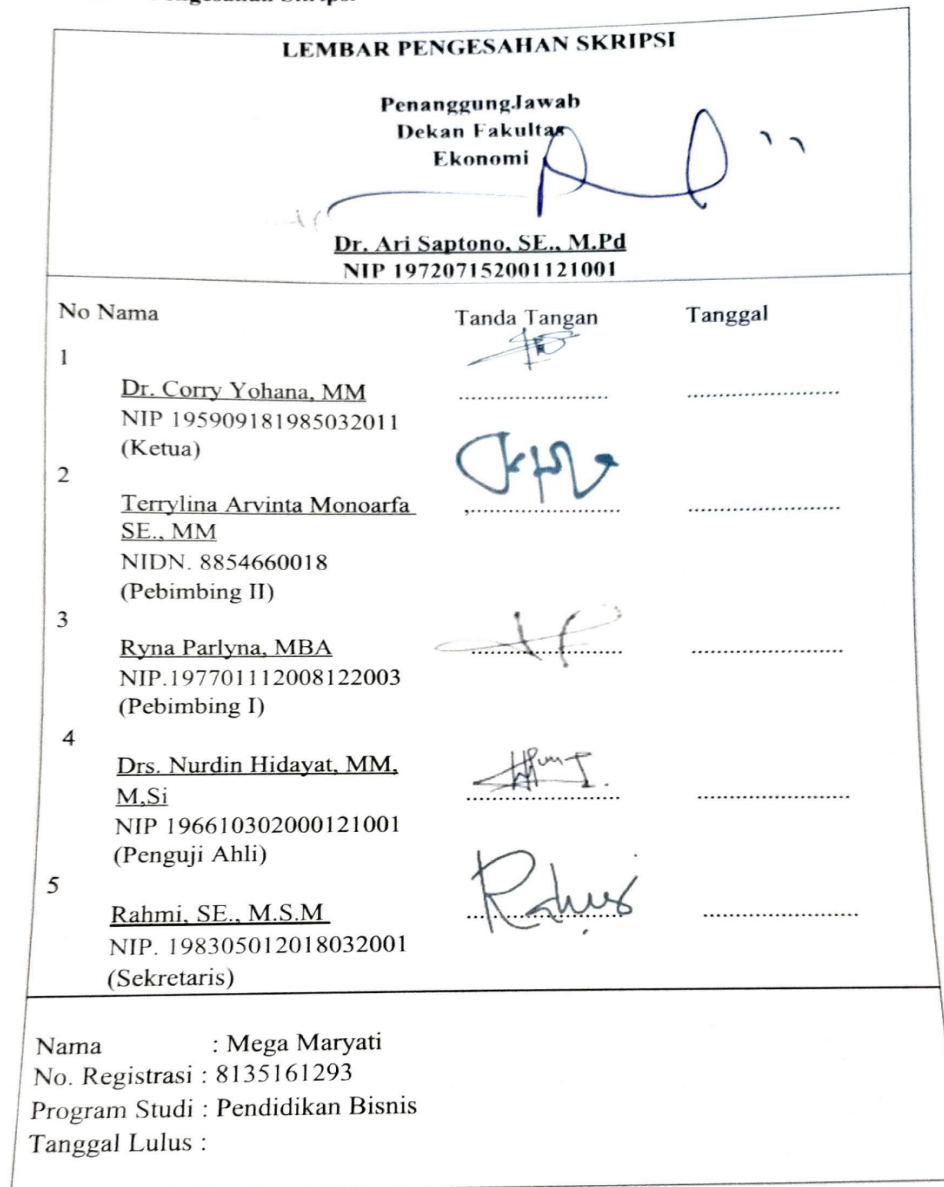 Pengesahan Skripsi
LEMBAR PENGESAHAN SKRIPSI
PenanggungJawab
Dekan Fakultas
Ekonomi
Dr. Ari Saptono, SE., M.Pd
NIP 197207152001121001
No Nama Tanda Tangan Tanggal
1
Dr. Corry Yohana, MM ........................ ........................
NIP 195909181985032011
(Ketua)
2
Terrylina Arvinta Monoarfa ,........................ ........................
SE., MM
NIDN. 8854660018
(Pebimbing II)
3
Ryna Parlyna, MBA ........................ ........................
NIP.197701112008122003
(Pebimbing I)
4
Drs. Nurdin Hidayat, MM,
M,Si ........................ ........................
NIP 196610302000121001
(Penguji Ahli)
5
Rahmi, SE., M.S.M ........................ ........................
NIP. 198305012018032001
(Sekretaris)
Nama : Mega Maryati
No. Registrasi : 8135161293
Program Studi : Pendidikan Bisnis
Tanggal Lulus :